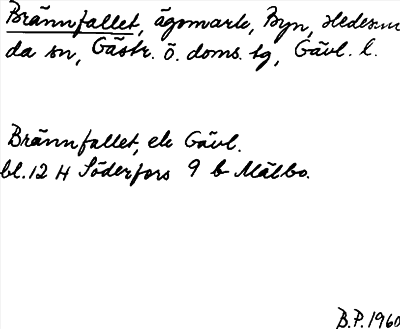 Brännfallet, ägomark, Byn, Hedesun
da sn, Gästr. ö. doms. tg, Gävl. l.
Brännfallet, ek Gävl.
bl. 12 H Söderfors 9 b Mälbo.
B.P. 1960